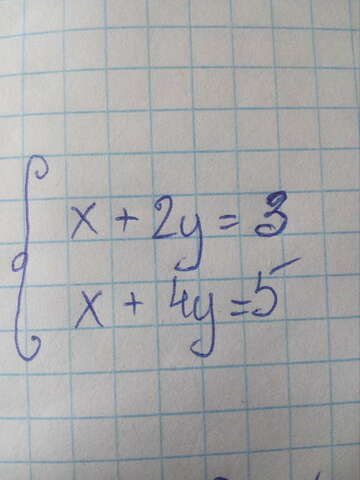 x + 2y = 3
x + 4y = 5